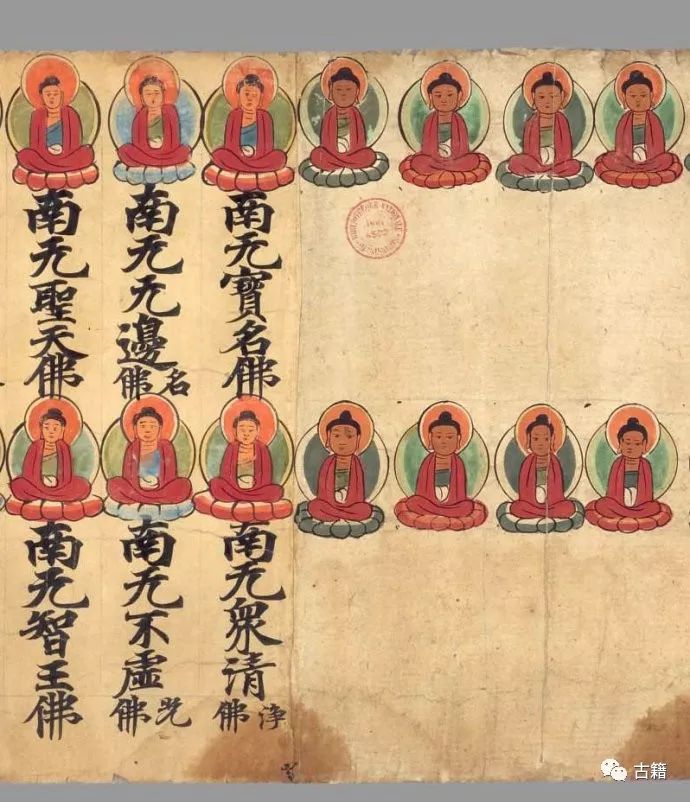 南无寶名佛
南无无邊名佛
南无聖天佛
南无衆清淨佛
南无不虛佛
南无智王佛
古籍